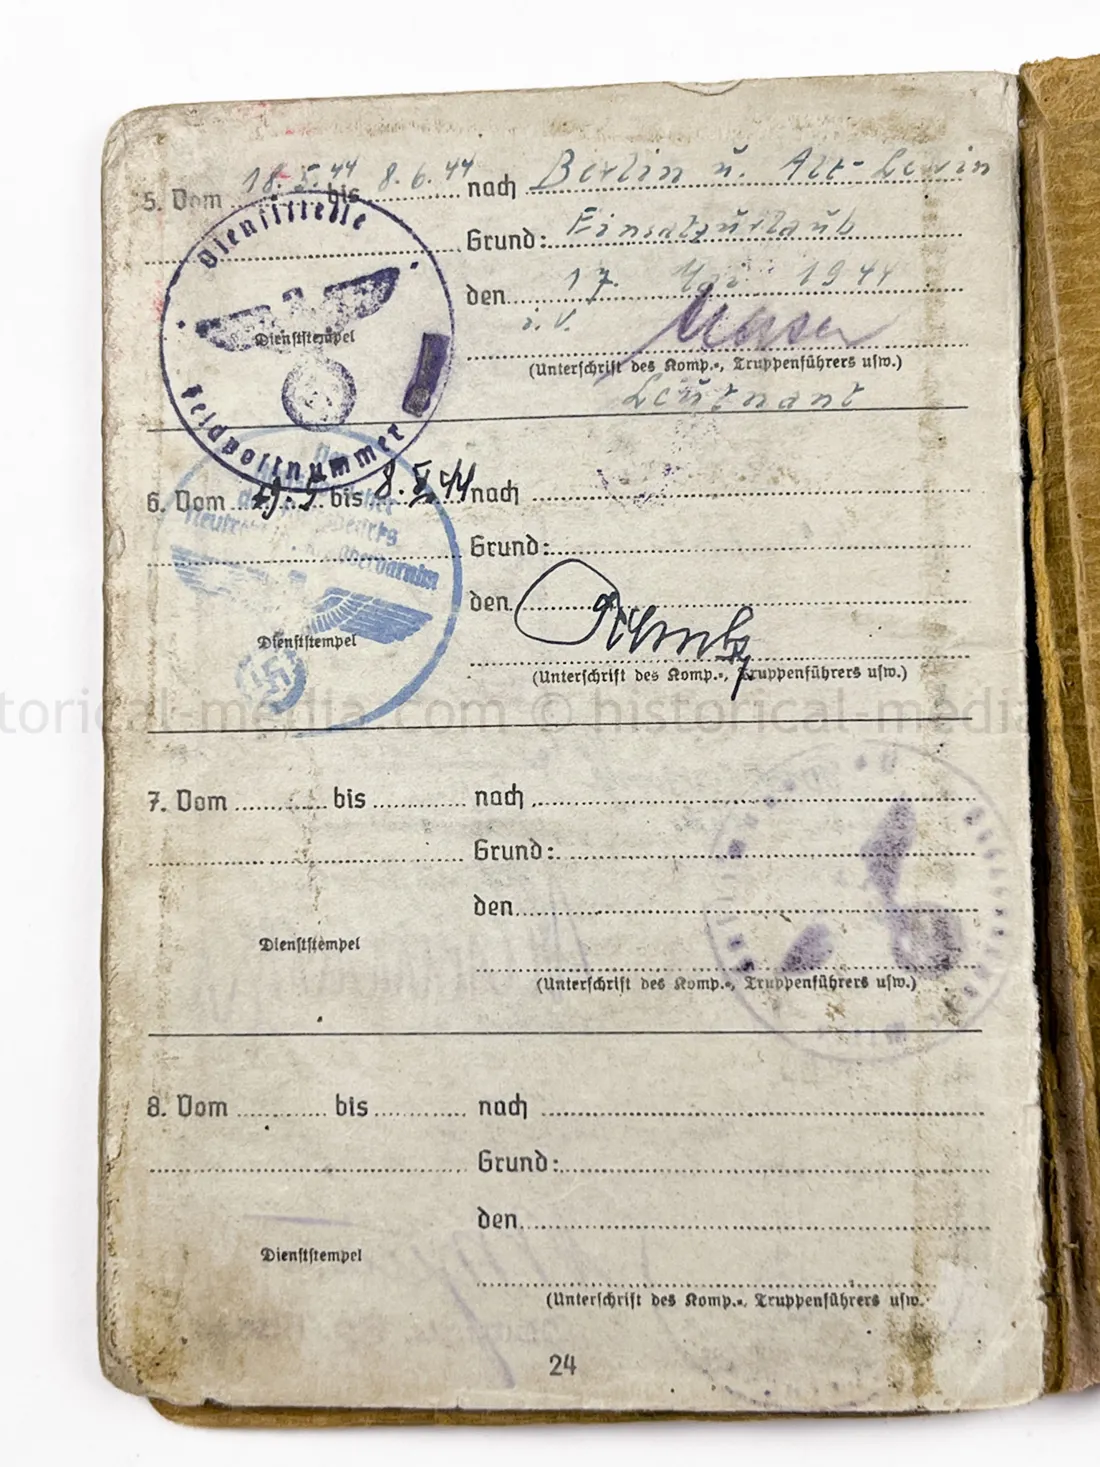 5. Vom 18.5.44 bis 8.6.44 nach Berlin u. Alt-Lewin
Grund: Einsatzurlaub
den 17. Mai 1944
i.V.
Dienststempel
(Unterschrift des Komp.-, Truppenführers usw.)
Leutnant
Dienststelle
Feldpostnummer
6. Vom 19.5 bis 8.V.44 nach
Grund:
den
Dienststempel
(Unterschrift des Komp.-, Truppenführers usw.)
historical-media.com © historical-media
7. Vom bis nach
Grund:
den
Dienststempel
(Unterschrift des Komp.-, Truppenführers usw.)
8. Vom bis nach
Grund:
den
Dienststempel
(Unterschrift des Komp.-, Truppenführers usw.)
24